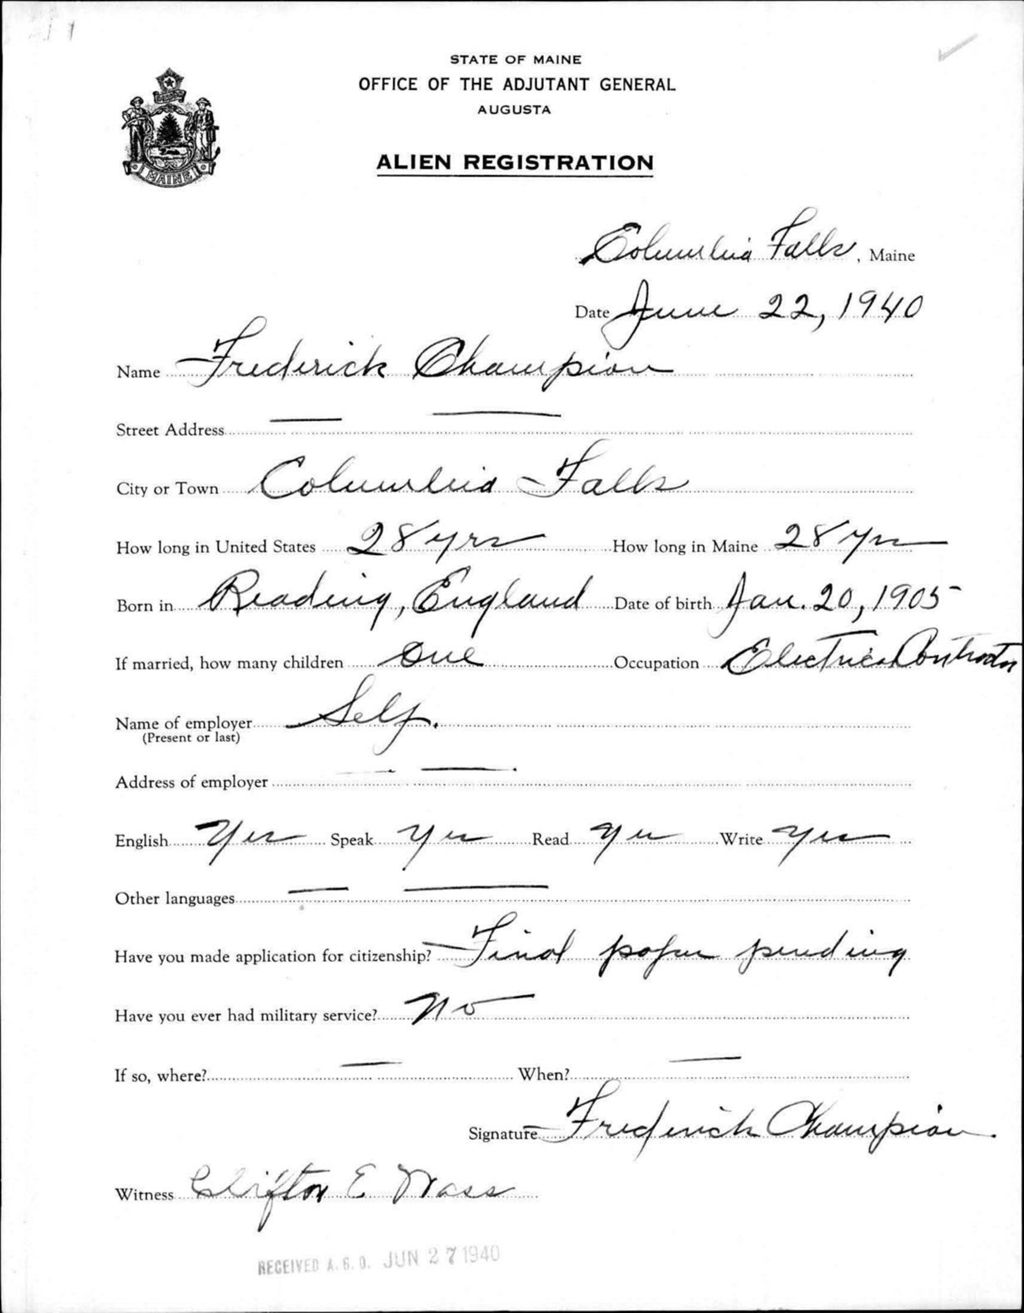 STATE OF MAINE
OFFICE OF THE ADJUTANT GENERAL
AUGUSTA
MAINE
ALIEN REGISTRATION
Columbia Falls, Maine
Date June 22, 1940
Name Frederick Champion
Street Address
City or Town Columbia Falls
How long in United States 28 yrs How long in Maine 28 yrs
Born in Reading, England Date of birth Jan. 20, 1905
If married, how many children one Occupation Electrical Contractor
Name of employer Self.
(Present or last)
Address of employer
English Yes Speak Yes Read Yes Write Yes
Other languages
Have you made application for citizenship? Final paper pending
Have you ever had military service? No
If so, where? When?
Signature Frederick Champion.
Witness Clifton E Wass
RECEIVED A.G.O. JUN 27 1940